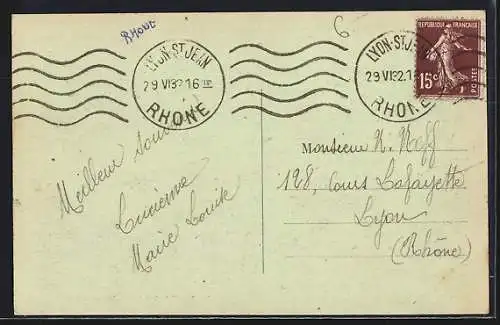 RHONE
6
LYON-ST JEAN
29 VI 32 16
RHONE
LYON-ST JEAN
29 VI 32 16
RHONE
REPUBLIQUE FRANÇAISE
15c
POSTES
Meilleur souvenir
Lucienne
Marie Louise
Monsieur N. Neff
128, Cours Lafayette
Lyon
(Rhône)